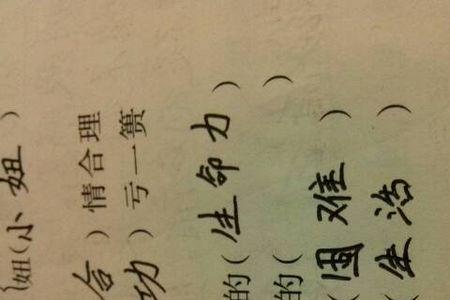 妞(小妞)
合)情合理
功)亏一篑
的(生命力)
的( )
(困难)
(生活)